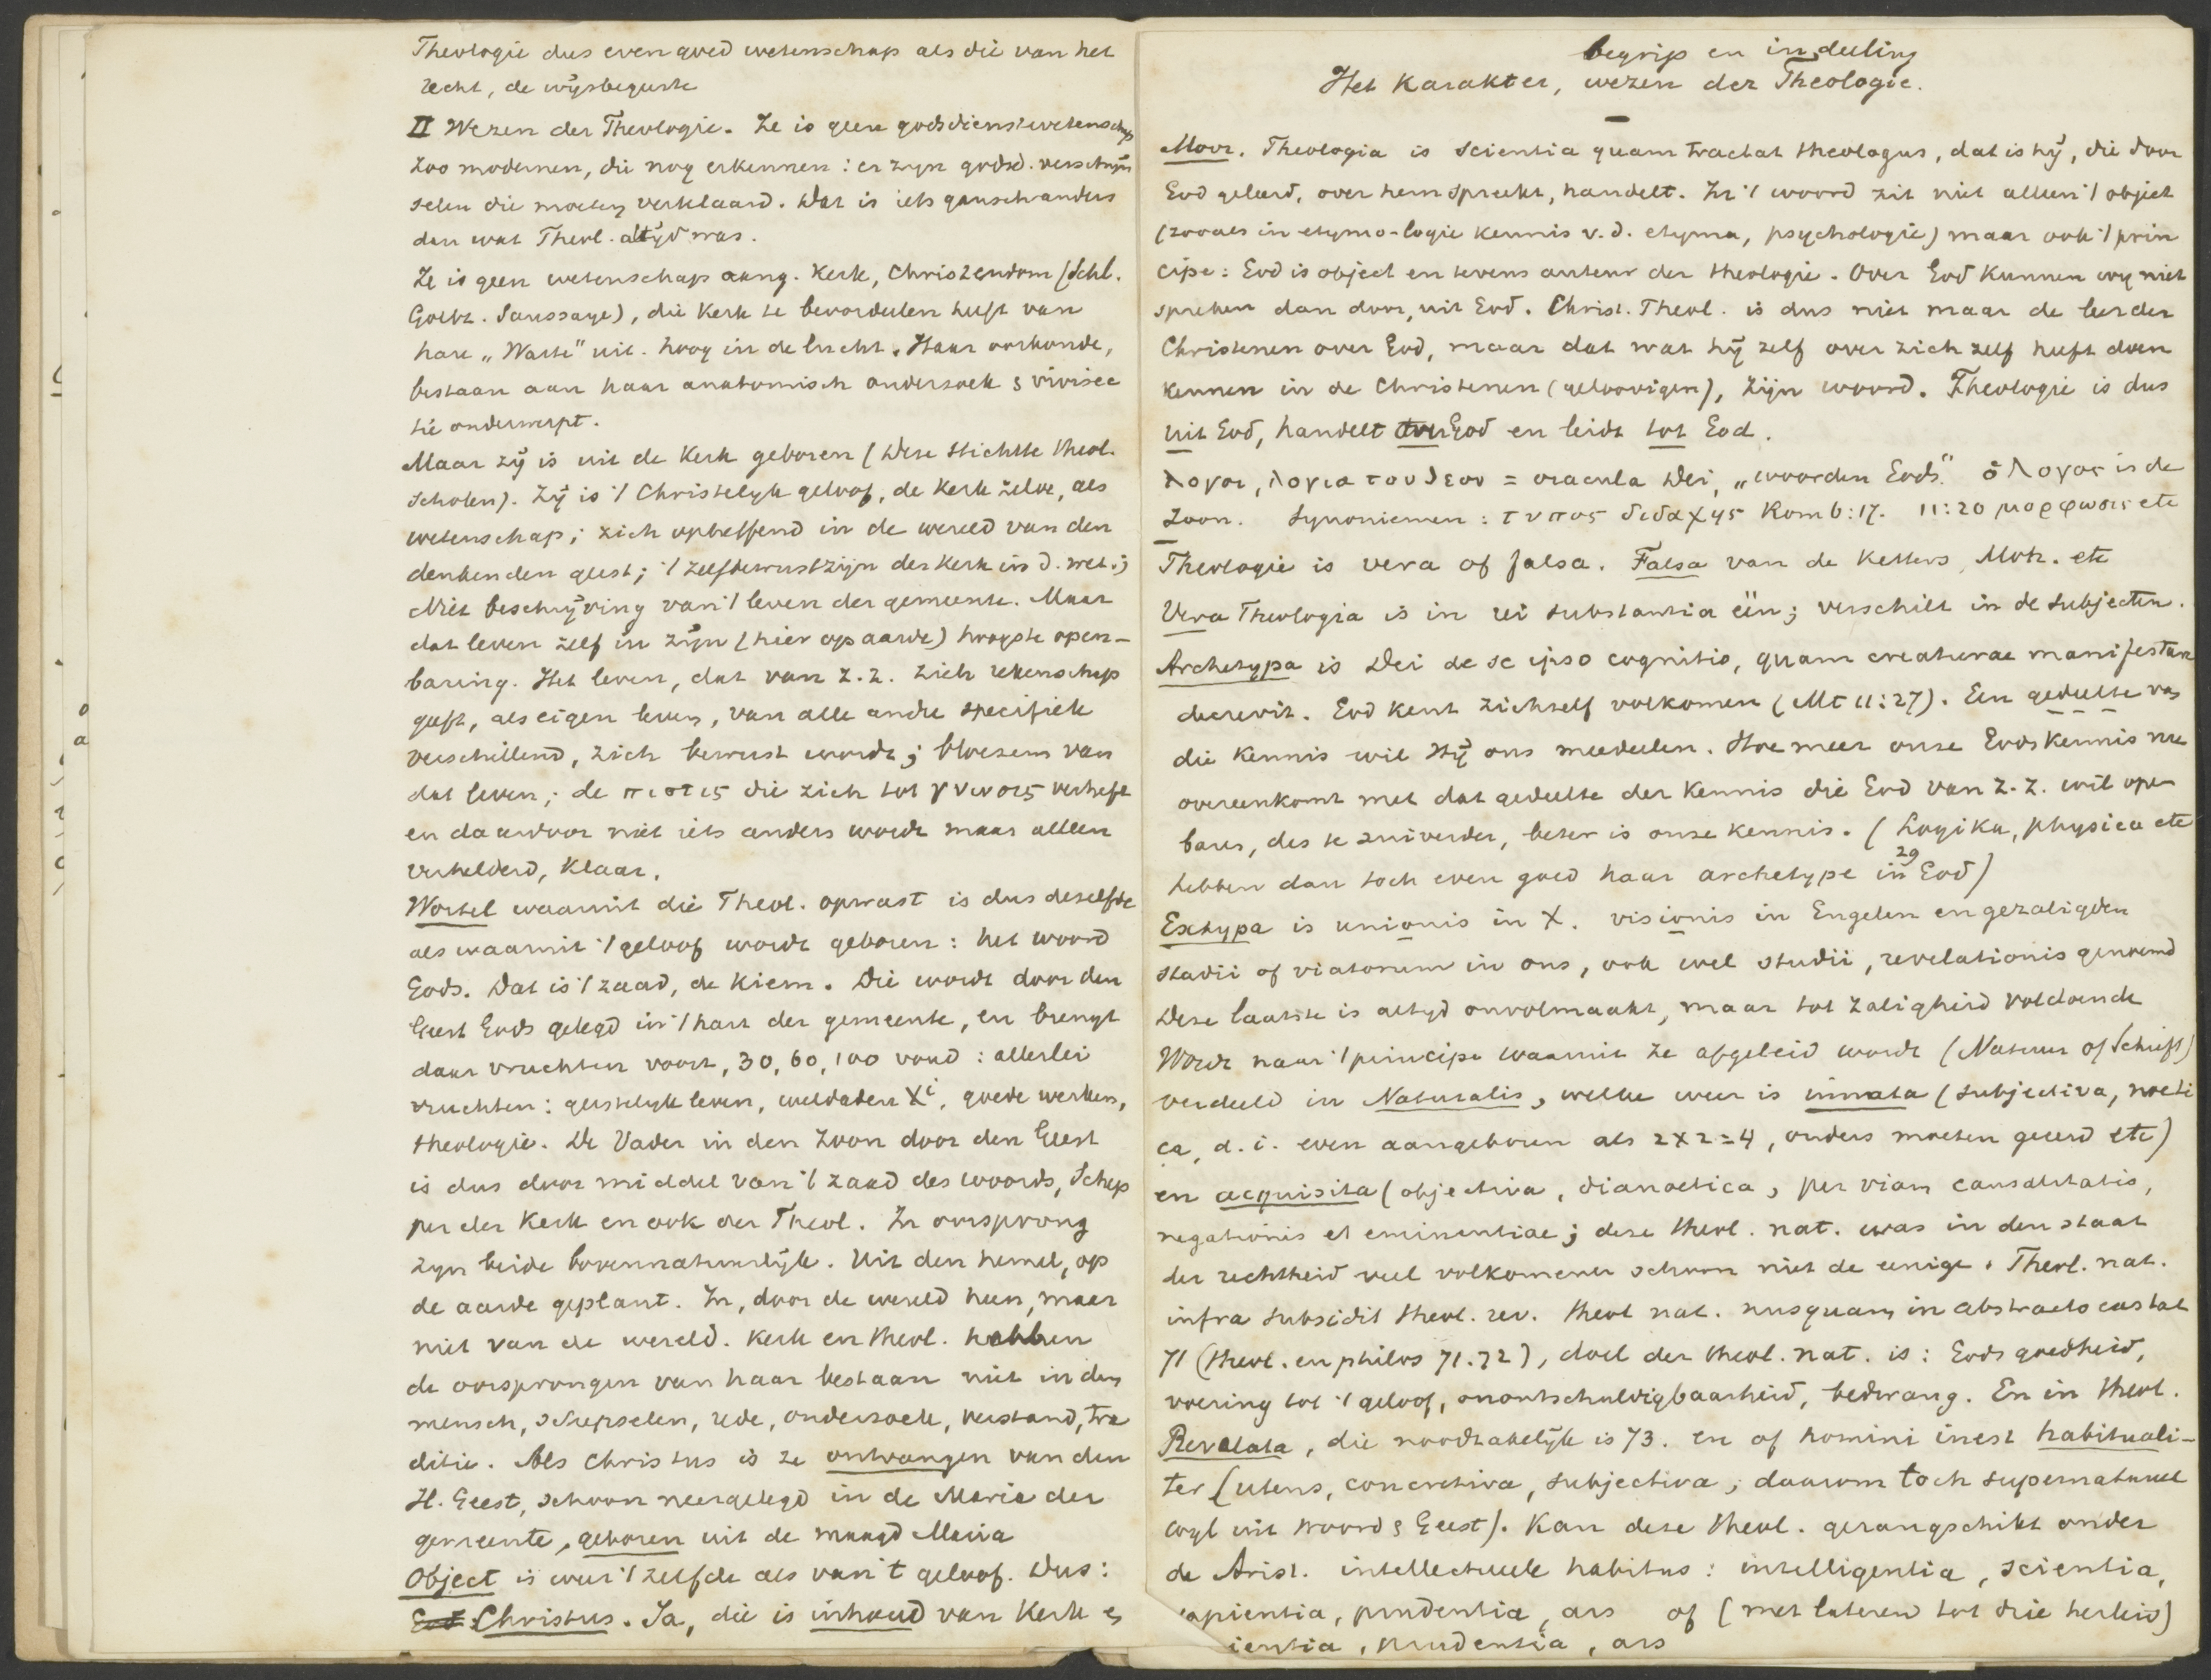 Theologie dus evengoed wetenschap als die van het
recht, de wijsbegeerte
II Wezen der Theologie. Ze is geen godsdienstwetenschap
zoo modernen, die nog erkennen: er zijn godsd. verschijn
selen die moeten verklaard. Dat is iets gansch anders
dan wat Theol. altijd was.
Ze is geen wetenschap aang. Kerk, Christendom (Schl.
Gottz. Saussaye), die Kerk te beoordeelen heeft van
hare „Warte" uit. hoog in de lucht. Haar oorkonde,
bestaan aan haar anatomisch onderzoek & vivisec
tie onderwerpt.
Maar zij is uit de Kerk geboren (Deze stichtte theol.
scholen). Zij is 't Christelijk geloof, de Kerk zelve, als
wetenschap; zich opheffend in de wereld van den
denkenden geest; 't zelfbewustzijn der Kerk in d. wet.;
Niet beschrijving van 't leven der gemeente. Maar
dat leven zelf in zijn (hier op aarde) hoogste open-
baring. Het leven, dat van z.z. zich rekenschap
geeft, als eigen leven, van alle andre specifiek
verschillend, zich bewust wordt; bloesem van
dat leven; de πιστις die zich tot γνωσις verheft
en daardoor niet iets anders wordt maar alleen
verhelderd, klaar.
Wortel waaruit die Theol. opwast is dus dezelfde
als waaruit 't geloof wordt geboren: het woord
Gods. Dat is 't zaad, de kiem. Die wordt door den
Geest Gods gelegd in 't hart der gemeente, en brengt
daar vruchten voort, 30, 60, 100 voud: allerlei
vruchten: geestelijk leven, weldaden Xi, goede werken,
theologie. De Vader in den Zoon door den Geest
is dus door middel van 't zaad des woords, Schep
per der Kerk en ook der Theol. In oorsprong
zijn beide bovennatuurlijk. Uit den hemel, op
de aarde geplant. In, door de wereld heen, maar
niet van de wereld. Kerk en theol. hebben
de oorsprongen van haar bestaan niet in den
mensch, schepselen, rede, onderzoek, verstand, tra
ditie. Als Christus is ze ontvangen van den
H. Geest, schoon neergelegd in de Maria der
gemeente, geboren uit de maagd Maria
Object is weer 't zelfde als van 't geloof. Dus:
God Christus. Ja, die is inhoud van Kerk en
begrip en indeeling
Het Karakter, wezen der Theologie.
Moor. Theologia is scientia quam tractat theologus, dat is hij, die door
God geleerd, over hem spreekt, handelt. In 't woord zit niet alleen 't object
(zooals in etymo-logie kennis v.d. etyma, psychologie) maar ook 't prin
cipe: God is object en tevens auteur der theologie. Over God kunnen wij niet
spreken dan door, uit God. Christ. Theol. is dus niet maar de leer der
Christenen over God, maar dat wat hij zelf over zich zelf heeft doen
kennen in de Christenen (geloovigen), zijn woord. Theologie is dus
uit God, handelt over God en leidt tot God.
λογοι, λογια του θεου = oracula Dei, „woorden Gods." ὁ λογος is de
Zoon. Synoniemen: τυπος διδαχης Rom 6:17. 11:20 μορφωσις etc
Theologie is vera of falsa. Falsa van de Ketters, Moh. etc
Vera Theologia is in rei substantia één; verschilt in de subjecten.
Archetypa is Dei de se ipso cognitio, quam creaturae manifestare
decrevit. God kent zichzelf volkomen (Mt 11:27). Een gedeelte van
die kennis wil Hij ons meedeelen. Hoe meer onze Godskennis nu
overeenkomt met dat gedeelte der kennis die God van z.z. wil open
baren, des te zuiverder, beter is onze kennis. (Logika, physica etc
29
hebben dan toch even goed haar archetype in God)
Ectypa is unionis in X. visionis in Engelen en gezaligden
stadii of viatorum in ons, ook wel studii, revelationis genoemd
Deze laatste is altijd onvolmaakt, maar tot zaligheid voldoende
Wordt naar 't principe waaruit ze afgeleid wordt (Natuur of Schrift)
verdeeld in Naturalis, welke weer is innata (subjectiva, noeti
ca, d.i. even aangeboren als 2x2=4, ouders moeten geeerd etc)
en acquisita (objectiva, dianoetica, per viam causalitatis,
negationis et eminentiae; deze theol. nat. was in den staat
der rechtheid veel volkomener schoon niet de eenige. Theol. nat.
infra subsidit theol. rev. theol nat. nusquam in abstracto exstat
71 (theol. en philos 71.72), doel der theol. nat. is: Gods goedheid,
voering tot 't geloof, onontschuldigbaarheid, bedwang. En in theol.
Revelata, die noodzakelijk is 73. en of homini inest habituali-
ter (utens, concretiva, subjectiva; daarom toch supernatureel
wijl uit woord & Geest). Kan deze theol. gerangschikt onder
de Arist. intellectueele habitus: intelligentia, scientia,
sapientia, prudentia, ars of (met lateren tot drie herleid)
ientia, prudentia, ars